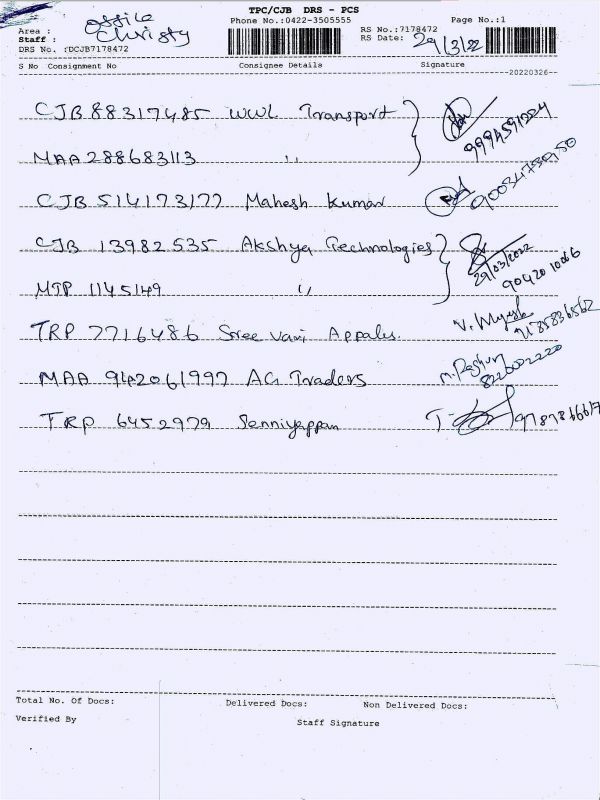 TPC/CJB DRS - PCS
Area : Office
Phone No.:0422-3505555
Page No.:1
Staff : Christy
RS No.:7178472
RS Date: 29/3/22
DRS No. :DCJB7178472
S No Consignment No Consignee Details Signature
20220326
CJB 88317485 WWL Transport
9994591224
MAA 288683113 "
CJB 514173177 Mahesh Kumar 9003473050
CJB 13982535 Akshya Technologies
29/03/2022
90420 10066
MTP 1145149 "
TRP 7716486 Sree Vari
V. Mugesh
MAA 942061997 AG Traders
8220022220
TRP 6452979 Senniyappan
Total No. Of Docs: Delivered Docs: Non Delivered Docs:
Verified By Staff Signature